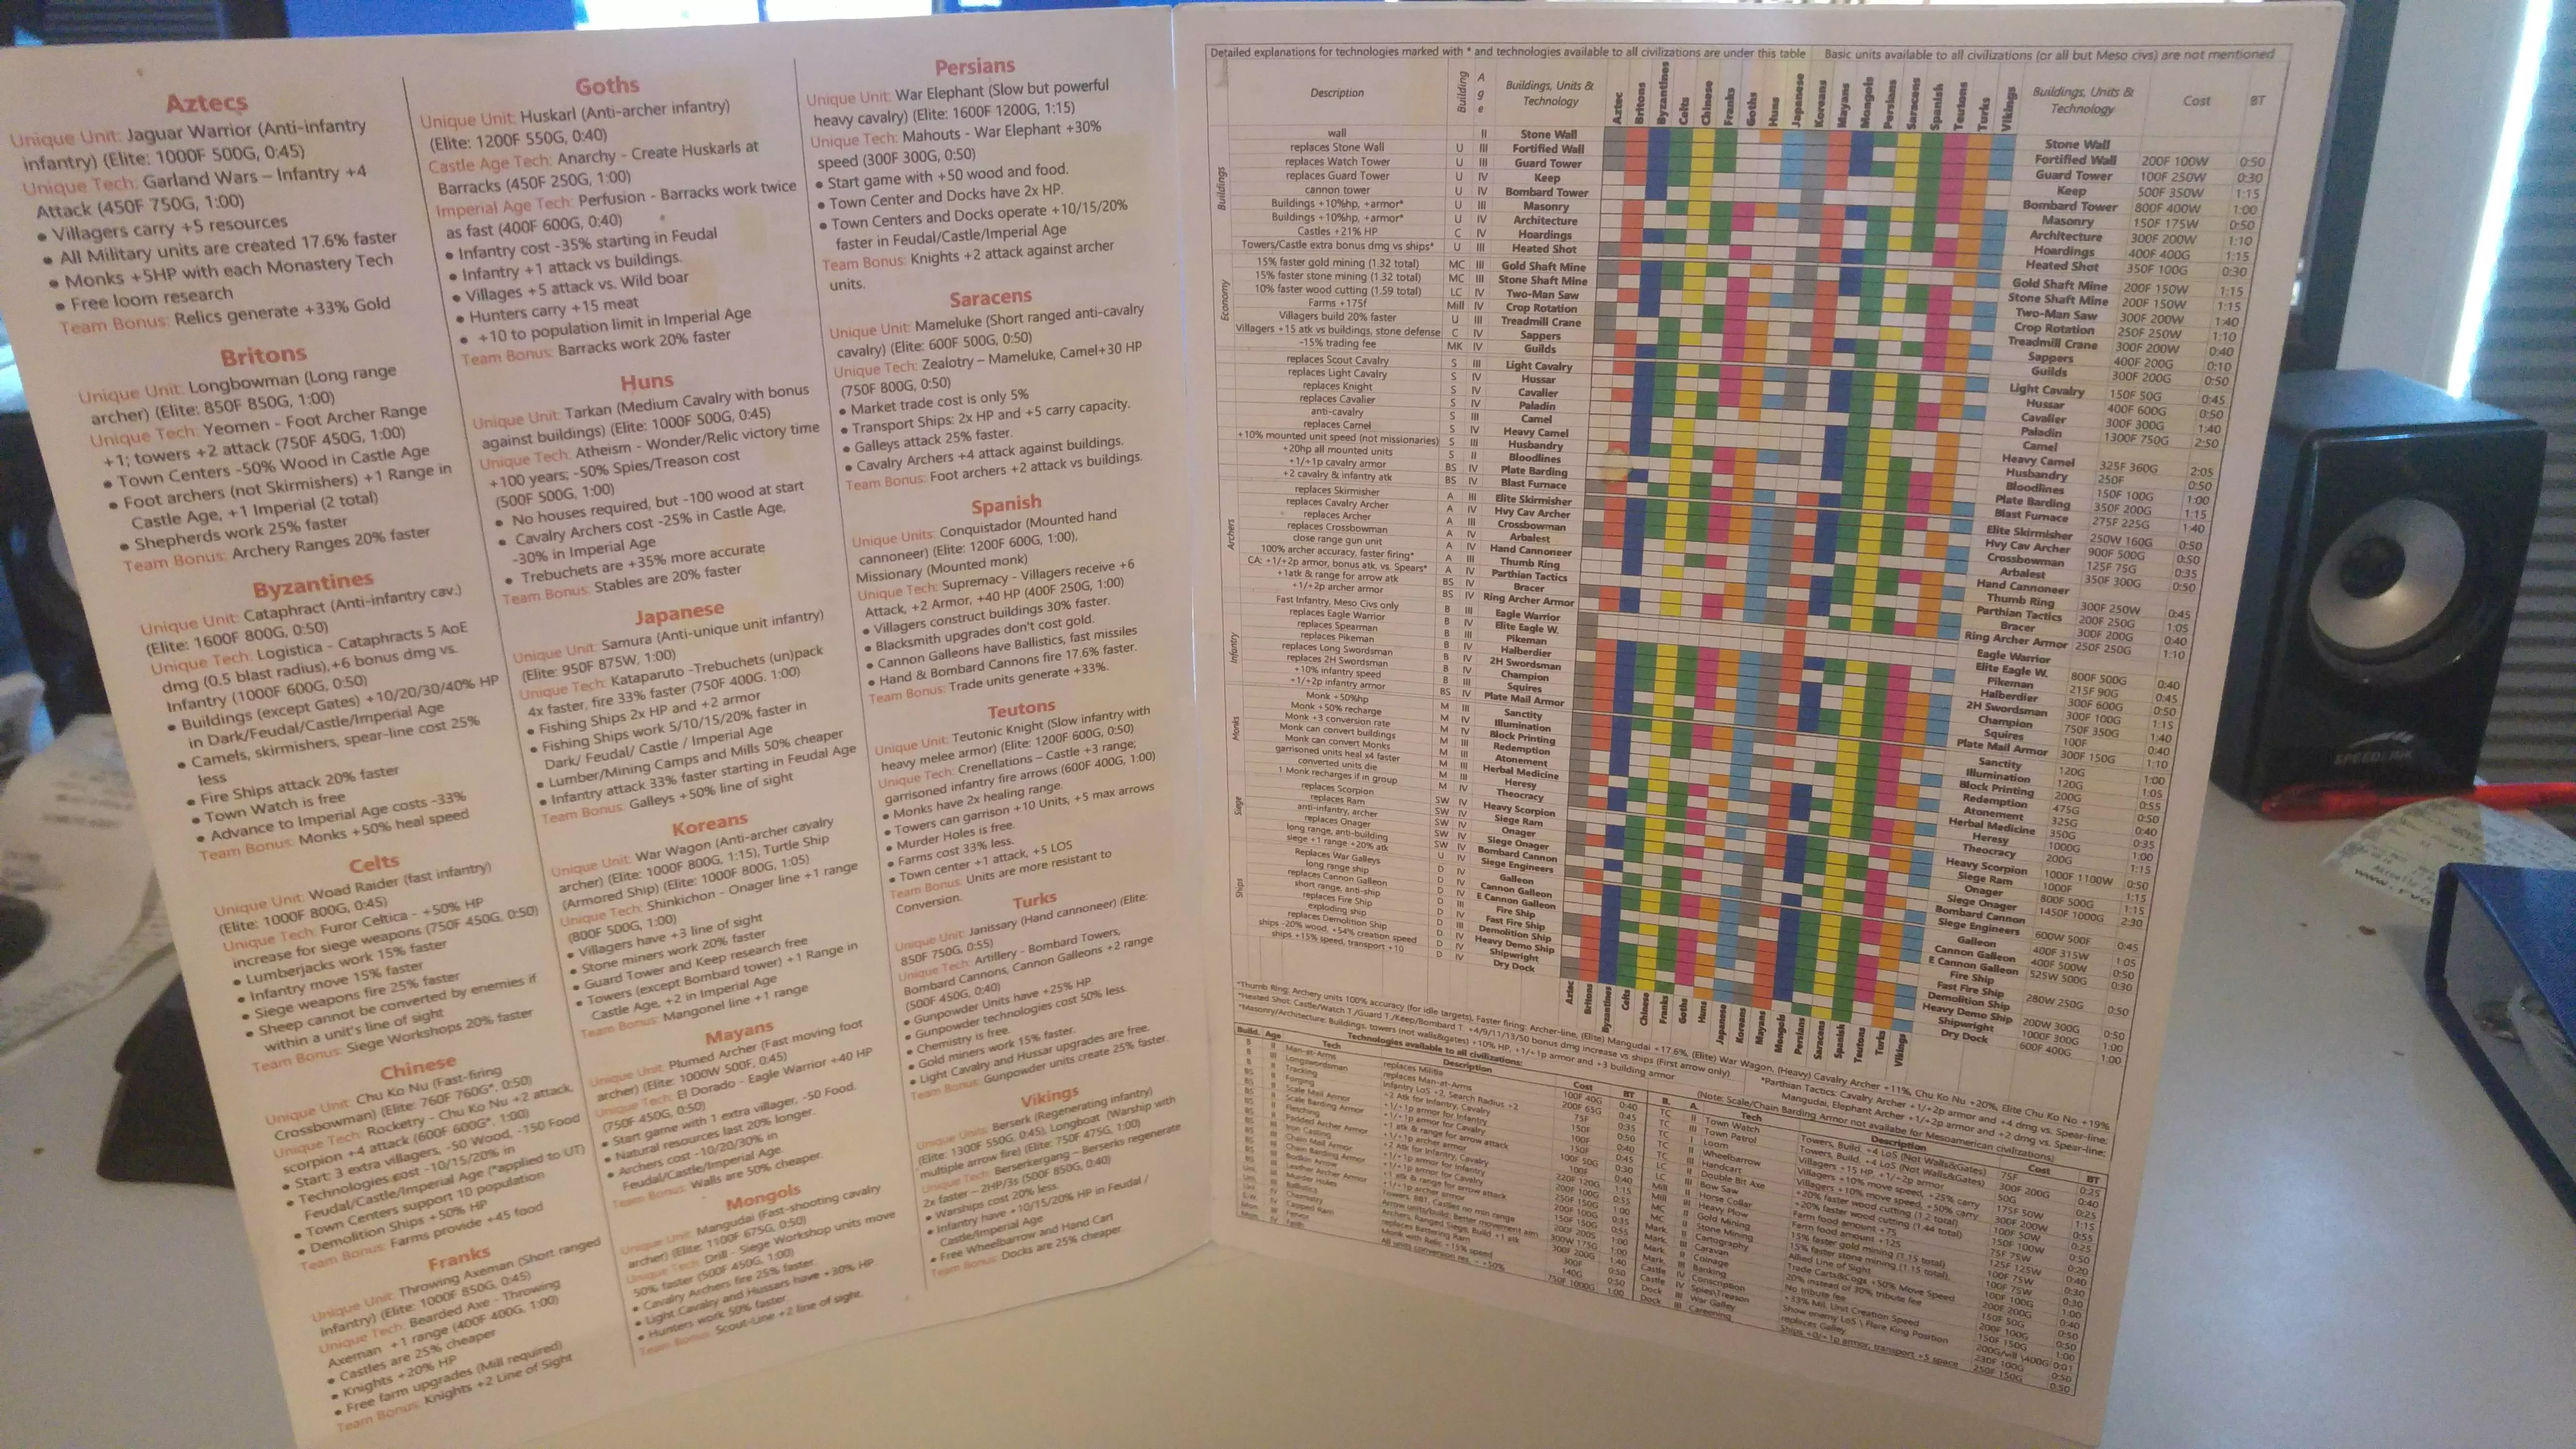 Aztecs
Unique Unit: Jaguar Warrior (Anti-infantry
infantry) (Elite: 1000F 500G, 0:45)
Unique Tech: Garland Wars – Infantry +4
Attack (450F 750G, 1:00)
• Villagers carry +5 resources
• All Military units are created 17.6% faster
• Monks +5HP with each Monastery Tech
• Free loom research
Team Bonus: Relics generate +33% Gold
Britons
Unique Unit: Longbowman (Long range
archer) (Elite: 850F 850G, 1:00)
Unique Tech: Yeomen - Foot Archer Range
+1; towers +2 attack (750F 450G, 1:00)
• Town Centers -50% Wood in Castle Age
• Foot archers (not Skirmishers) +1 Range in
Castle Age, +1 Imperial (2 total)
• Shepherds work 25% faster
Team Bonus: Archery Ranges 20% faster
Byzantines
Unique Unit: Cataphract (Anti-infantry cav.)
(Elite: 1600F 800G, 0:50)
Unique Tech: Logistica - Cataphracts 5 AoE
dmg (0.5 blast radius),+6 bonus dmg vs.
Infantry (1000F 600G, 0:50)
• Buildings (except Gates) +10/20/30/40% HP
in Dark/Feudal/Castle/Imperial Age
• Camels, skirmishers, spear-line cost 25%
less
• Fire Ships attack 20% faster
• Town Watch is free
• Advance to Imperial Age costs -33%
Team Bonus: Monks +50% heal speed
Celts
Unique Unit: Woad Raider (fast infantry)
(Elite: 1000F 800G, 0:45)
Unique Tech: Furor Celtica - +50% HP
increase for siege weapons (750F 450G, 0:50)
• Lumberjacks work 15% faster
• Infantry move 15% faster
• Siege weapons fire 25% faster
• Sheep cannot be converted by enemies if
within a unit's line of sight
Team Bonus: Siege Workshops 20% faster
Chinese
Unique Unit: Chu Ko Nu (Fast-firing
Crossbowman) (Elite: 760F 760G*, 0:50)
Unique Tech: Rocketry - Chu Ko Nu +2 attack,
scorpion +4 attack (600F 600G*, 1:00)
• Start: 3 extra villagers, -50 Wood, -150 Food
• Technologies cost -10/15/20% in
Feudal/Castle/Imperial Age (*applied to UT)
• Town Centers support 10 population
• Demolition Ships +50% HP
Team Bonus: Farms provide +45 food
Franks
Unique Unit: Throwing Axeman (Short ranged
infantry) (Elite: 1000F 850G, 0:45)
Unique Tech: Bearded Axe - Throwing
Axeman +1 range (400F 400G, 1:00)
• Castles are 25% cheaper
• Knights +20% HP
• Free farm upgrades (Mill required)
Team Bonus: Knights +2 Line of Sight
Goths
Unique Unit: Huskarl (Anti-archer infantry)
(Elite: 1200F 550G, 0:40)
Castle Age Tech: Anarchy - Create Huskarls at
Barracks (450F 250G, 1:00)
Imperial Age Tech: Perfusion - Barracks work twice
as fast (400F 600G, 0:40)
• Infantry cost -35% starting in Feudal
• Infantry +1 attack vs buildings.
• Villages +5 attack vs. Wild boar
• Hunters carry +15 meat
• +10 to population limit in Imperial Age
Team Bonus: Barracks work 20% faster
Huns
Unique Unit: Tarkan (Medium Cavalry with bonus
against buildings) (Elite: 1000F 500G, 0:45)
Unique Tech: Atheism - Wonder/Relic victory time
+100 years; -50% Spies/Treason cost
(500F 500G, 1:00)
• No houses required, but -100 wood at start
• Cavalry Archers cost -25% in Castle Age,
-30% in Imperial Age
• Trebuchets are +35% more accurate
Team Bonus: Stables are 20% faster
Japanese
Unique Unit: Samura (Anti-unique unit infantry)
(Elite: 950F 875W, 1:00)
Unique Tech: Kataparuto -Trebuchets (un)pack
4x faster, fire 33% faster (750F 400G. 1:00)
• Fishing Ships 2x HP and +2 armor
• Fishing Ships work 5/10/15/20% faster in
Dark/ Feudal/ Castle / Imperial Age
• Lumber/Mining Camps and Mills 50% cheaper
• Infantry attack 33% faster starting in Feudal Age
Team Bonus: Galleys +50% line of sight
Koreans
Unique Unit: War Wagon (Anti-archer cavalry
archer) (Elite: 1000F 800G, 1:15), Turtle Ship
(Armored Ship) (Elite: 1000F 800G, 1:05)
Unique Tech: Shinkichon - Onager line +1 range
(800F 500G, 1:00)
• Villagers have +3 line of sight
• Stone miners work 20% faster
• Guard Tower and Keep research free
• Towers (except Bombard tower) +1 Range in
Castle Age, +2 in Imperial Age
Team Bonus: Mangonel line +1 range
Mayans
Unique Unit: Plumed Archer (Fast moving foot
archer) (Elite: 1000W 500F, 0:45)
Unique Tech: El Dorado - Eagle Warrior +40 HP
(750F 450G, 0:50)
• Start game with 1 extra villager, -50 Food.
• Natural resources last 20% longer.
• Archers cost -10/20/30% in
Feudal/Castle/Imperial Age.
Team Bonus: Walls are 50% cheaper.
Mongols
Unique Unit: Mangudai (Fast-shooting cavalry
archer) (Elite: 1100F 675G, 0:50)
Unique Tech: Drill - Siege Workshop units move
50% faster (500F 450G, 1:00)
• Cavalry Archers fire 25% faster.
• Light Cavalry and Hussars have +30% HP
• Hunters work 50% faster
Team Bonus: Scout-Line +2 line of sight.
Persians
Unique Unit: War Elephant (Slow but powerful
heavy cavalry) (Elite: 1600F 1200G, 1:15)
Unique Tech: Mahouts - War Elephant +30%
speed (300F 300G, 0:50)
• Start game with +50 wood and food.
• Town Center and Docks have 2x HP.
• Town Centers and Docks operate +10/15/20%
faster in Feudal/Castle/Imperial Age
Team Bonus: Knights +2 attack against archer
units.
Saracens
Unique Unit: Mameluke (Short ranged anti-cavalry
cavalry) (Elite: 600F 500G, 0:50)
Unique Tech: Zealotry – Mameluke, Camel+30 HP
(750F 800G, 0:50)
• Market trade cost is only 5%
• Transport Ships: 2x HP and +5 carry capacity.
• Galleys attack 25% faster.
• Cavalry Archers +4 attack against buildings.
Team Bonus: Foot archers +2 attack vs buildings.
Spanish
Unique Units: Conquistador (Mounted hand
cannoneer) (Elite: 1200F 600G, 1:00),
Missionary (Mounted monk)
Unique Tech: Supremacy - Villagers receive +6
Attack, +2 Armor, +40 HP (400F 250G, 1:00)
• Villagers construct buildings 30% faster.
• Blacksmith upgrades don't cost gold.
• Cannon Galleons have Ballistics, fast missiles
• Hand & Bombard Cannons fire 17.6% faster.
Team Bonus: Trade units generate +33%.
Teutons
Unique Unit: Teutonic Knight (Slow infantry with
heavy melee armor) (Elite: 1200F 600G, 0:50)
Unique Tech: Crenellations – Castle +3 range;
garrisoned infantry fire arrows (600F 400G, 1:00)
• Monks have 2x healing range.
• Towers can garrison +10 Units, +5 max arrows
• Murder Holes is free.
• Farms cost 33% less.
• Town center +1 attack, +5 LOS
Team Bonus: Units are more resistant to
Conversion.
Turks
Unique Unit: Janissary (Hand cannoneer) (Elite:
850F 750G, 0:55)
Unique Tech: Artillery - Bombard Towers,
Bombard Cannons, Cannon Galleons +2 range
(500F 450G, 0:40)
• Gunpowder Units have +25% HP.
• Gunpowder technologies cost 50% less.
• Chemistry is free.
• Gold miners work 15% faster.
• Light Cavalry and Hussar upgrades are free.
Team Bonus: Gunpowder units create 25% faster.
Vikings
Unique Units: Berserk (Regenerating infantry)
(Elite: 1300F 550G, 0:45), Longboat (Warship with
multiple arrow fire) (Elite: 750F 475G, 1:00)
Unique Tech: Berserkergang – Berserks regenerate
2x faster – 2HP/3s (500F 850G, 0:40)
• Warships cost 20% less.
• Infantry have +10/15/20% HP in Feudal /
Castle/Imperial Age
• Free Wheelbarrow and Hand Cart
Team Bonus: Docks are 25% cheaper
Detailed explanations for technologies marked with * and technologies available to all civilizations are under this table Basic units available to all civilizations (or all but Meso civs) are not mentioned
Description Building Age Buildings, Units & Technology Aztec Britons Byzantines Celts Chinese Franks Goths Huns Japanese Koreans Mayans Mongols Persians Saracens Spanish Teutons Turks Vikings Buildings, Units & Technology Cost BT
Buildings
wall II Stone Wall Stone Wall
replaces Stone Wall U III Fortified Wall Fortified Wall 200F 100W 0:50
replaces Watch Tower U III Guard Tower Guard Tower 100F 250W 0:30
replaces Guard Tower U IV Keep Keep 500F 350W 1:15
cannon tower U IV Bombard Tower Bombard Tower 800F 400W 1:00
Buildings +10%hp, +armor* U III Masonry Masonry 150F 175W 0:50
Buildings +10%hp, +armor* U IV Architecture Architecture 300F 200W 1:10
Castles +21% HP C IV Hoardings Hoardings 400F 400G 1:15
Towers/Castle extra bonus dmg vs ships* U III Heated Shot Heated Shot 350F 100G 0:30
Economy
15% faster gold mining (1.32 total) MC III Gold Shaft Mine Gold Shaft Mine 200F 150W 1:15
15% faster stone mining (1.32 total) MC III Stone Shaft Mine Stone Shaft Mine 200F 150W 1:15
10% faster wood cutting (1.59 total) LC IV Two-Man Saw Two-Man Saw 300F 200W 1:40
Farms +175f Mill IV Crop Rotation Crop Rotation 250F 250W 1:10
Villagers build 20% faster U III Treadmill Crane Treadmill Crane 300F 200W 0:40
Villagers +15 atk vs buildings, stone defense C IV Sappers Sappers 400F 200G 0:10
-15% trading fee MK IV Guilds Guilds 300F 200G 0:50
replaces Scout Cavalry S III Light Cavalry Light Cavalry 150F 50G 0:45
replaces Light Cavalry S IV Hussar Hussar 400F 600G 0:50
replaces Knight S IV Cavalier Cavalier 300F 300G 1:40
replaces Cavalier S IV Paladin Paladin 1300F 750G 2:50
anti-cavalry S III Camel Camel
replaces Camel S IV Heavy Camel Heavy Camel 325F 360G 2:05
+10% mounted unit speed (not missionaries) S III Husbandry Husbandry 250F 0:50
+20hp all mounted units S II Bloodlines Bloodlines 150F 100G 1:00
+1/+1p cavalry armor BS IV Plate Barding Plate Barding 350F 200G 1:15
+2 cavalry & infantry atk BS IV Blast Furnace Blast Furnace 275F 225G 1:40
Archers
replaces Skirmisher A III Elite Skirmisher Elite Skirmisher 250W 160G 0:50
replaces Cavalry Archer A IV Hvy Cav Archer Hvy Cav Archer 900F 500G 0:50
replaces Archer A III Crossbowman Crossbowman 125F 75G 0:35
replaces Crossbowman A IV Arbalest Arbalest 350F 300G 0:50
close range gun unit A IV Hand Cannoneer Hand Cannoneer
100% archer accuracy, faster firing* A III Thumb Ring Thumb Ring 300F 250W 0:45
CA: +1/+2p armor, bonus atk. vs. Spears* A IV Parthian Tactics Parthian Tactics 200F 250G 1:05
+1atk & range for arrow atk BS IV Bracer Bracer 300F 200G 0:40
+1/+2p archer armor BS IV Ring Archer Armor Ring Archer Armor 250F 250G 1:10
Infantry
Fast Infantry, Meso Civs only B III Eagle Warrior Eagle Warrior
replaces Eagle Warrior B IV Elite Eagle W. Elite Eagle W. 800F 500G 0:40
replaces Spearman B III Pikeman Pikeman 215F 90G 0:45
replaces Pikeman B IV Halberdier Halberdier 300F 600G 0:50
replaces Long Swordsman B IV 2H Swordsman 2H Swordsman 300F 100G 1:15
replaces 2H Swordsman B IV Champion Champion 750F 350G 1:40
+10% infantry speed B III Squires Squires 100F 0:40
+1/+2p infantry armor BS IV Plate Mail Armor Plate Mail Armor 300F 150G 1:10
Monks
Monk +50%hp M III Sanctity Sanctity 120G 1:00
Monk +50% recharge M IV Illumination Illumination 120G 1:05
Monk +3 conversion rate M IV Block Printing Block Printing 200G 0:55
Monk can convert buildings M III Redemption Redemption 475G 0:50
Monk can convert Monks M III Atonement Atonement 325G 0:40
garrisoned units heal x4 faster M III Herbal Medicine Herbal Medicine 350G 0:35
converted units die M III Heresy Heresy 1000G 1:00
1 Monk recharges if in group M IV Theocracy Theocracy 200G 1:15
Siege
replaces Scorpion SW IV Heavy Scorpion Heavy Scorpion 1000F 1100W 0:50
replaces Ram SW IV Siege Ram Siege Ram 1000F 1:15
anti-infantry, archer SW IV Onager Onager 800F 500G 1:15
replaces Onager SW IV Siege Onager Siege Onager 1450F 1000G 2:30
long range, anti-building SW IV Bombard Cannon Bombard Cannon
siege +1 range +20% atk U IV Siege Engineers Siege Engineers 600W 500F 0:45
Ships
Replaces War Galleys D IV Galleon Galleon 400F 315W 1:05
long range ship D IV Cannon Galleon Cannon Galleon 400F 500W 0:50
replaces Cannon Galleon D IV E Cannon Galleon E Cannon Galleon 525W 500G 0:30
short range, anti-ship D III Fire Ship Fire Ship
replaces Fire Ship D IV Fast Fire Ship Fast Fire Ship 280W 250G 0:50
exploding ship D III Demolition Ship Demolition Ship
replaces Demolition Ship D IV Heavy Demo Ship Heavy Demo Ship 200W 300G 0:50
ships -20% wood, +54% creation speed D IV Shipwright Shipwright 1000F 300G 1:00
ships +15% speed, transport +10 D IV Dry Dock Dry Dock 600F 400G 1:00
Aztec Britons Byzantines Celts Chinese Franks Goths Huns Japanese Koreans Mayans Mongols Persians Saracens Spanish Teutons Turks Vikings
*Thumb Ring: Archery units 100% accuracy (for idle targets), Faster firing: Archer-line, (Elite) Mangudai +17.6%, (Elite) War Wagon, (Heavy) Cavalry Archer +11%, Chu Ko Nu +20%, Elite Chu Ko No +19%
*Heated Shot: Castle/Watch T./Guard T./Keep/Bombard T. +4/9/11/13/50 bonus dmg increase vs ships (First arrow only)
*Parthian Tactics: Cavalry Archer +1/+2p armor and +4 dmg vs. Spear-line;
Mangudai, Elephant Archer +1/+2p armor and +2 dmg vs. Spear-line;
*Masonry/Architecture: Buildings, towers (not walls&gates) +10% HP, +1/+1p armor and +3 building armor
(Note: Scale/Chain Barding Armor not available for Mesoamerican civilizations)
Technologies available to all civilizations:
Build. Age Tech Description Cost BT
Man-at-Arms replaces Militia 100F 40G 0:40
Longswordsman replaces Man-at-Arms 200F 65G 0:45
Tracking Infantry LoS +2, Search Radius +2 75F 0:35
Forging +2 Atk for Infantry, Cavalry 150F 0:50
Scale Mail Armor +1/+1p armor for Infantry 100F 0:40
Scale Barding Armor +1/+1p armor for Cavalry 150F 0:45
Fletching +1 atk & range for arrow attack 100F 50G 0:30
Padded Archer Armor +1/+1p archer armor 100F 0:40
Iron Casting +2 Atk for Infantry, Cavalry 220F 120G 1:15
Chain Mail Armor +1/+1p armor for Infantry 200F 100G
Chain Barding Armor +1/+1p armor for Cavalry 250F 150G
Bodkin Arrow +1 atk & range for arrow attack 200F 100G 0:35
Leather Archer Armor +1/+1p archer armor 150F 150G 0:55
Murder Holes Towers, BBT, Castles no min range 200F 200S
Ballistics Arrow units/build: better movement aim 300W 175G
Chemistry Archers, Ranged Siege, Build +1 atk 300F 200G
Capped Ram replaces Battering Ram 300F
Fervor Monk with Relic +15% speed 140G 0:50
Faith All units conversion res. - +50% 750F 1000G 1:00
B. A. Tech Description Cost BT
TC II Town Watch Towers, Build. +4 LoS (Not Walls&Gates) 75F 0:25
TC III Town Patrol Towers, Build. +4 LoS (Not Walls&Gates) 300F 200G 0:40
TC I Loom Villagers +15 HP +1/+2p armor 50G 0:25
TC II Wheelbarrow Villagers +10% move speed, +25% carry 175F 50W 1:15
TC III Handcart Villagers +10% move speed, +50% carry 300F 200W 0:55
LC II Double Bit Axe +20% faster wood cutting (1.2 total) 100F 50W 0:25
LC III Bow Saw +20% faster wood cutting (1.44 total) 150F 100W
Mill II Horse Collar Farm food amount +75 75F 75W 0:20
Mill III Heavy Plow Farm food amount +125 125F 125W 0:40
MC II Gold Mining 15% faster gold mining (1.15 total) 100F 75W 0:30
MC II Stone Mining 15% faster stone mining (1.15 total) 100F 75W 0:30
Mark. Cartography Allied Line of Sight 100F 100G 1:00
Mark. III Caravan Trade Carts&Cogs +50% Move Speed 200F 200G 0:40
Mark. Coinage 20% instead of 30% tribute fee 150F 50G
Mark. Banking No tribute fee 200F 100G 0:50
Castle IV Conscription +33% Mil. Unit Creation Speed 150F 150G 1:00
Castle IV Spies\Treason Show enemy LoS \ Flare King Position 200G/vill \400G 0:01
Dock III War Galley replaces Galley 230F 100G 0:50
Dock III Careening Ships +0/+1p armor, transport +5 space 250F 150G 0:50
SPEEDLINK